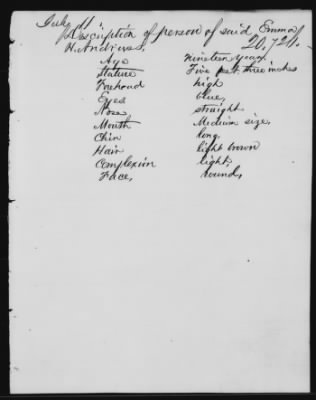 July 11
Description of person of said Emma
H. Andrews. 20,724.
Age Nineteen years
Stature Five feet three inches
Forehead high
Eyes blue,
Nose straight
Mouth Medium size,
Chin long,
Hair light brown
Complexion light,
Face, round,